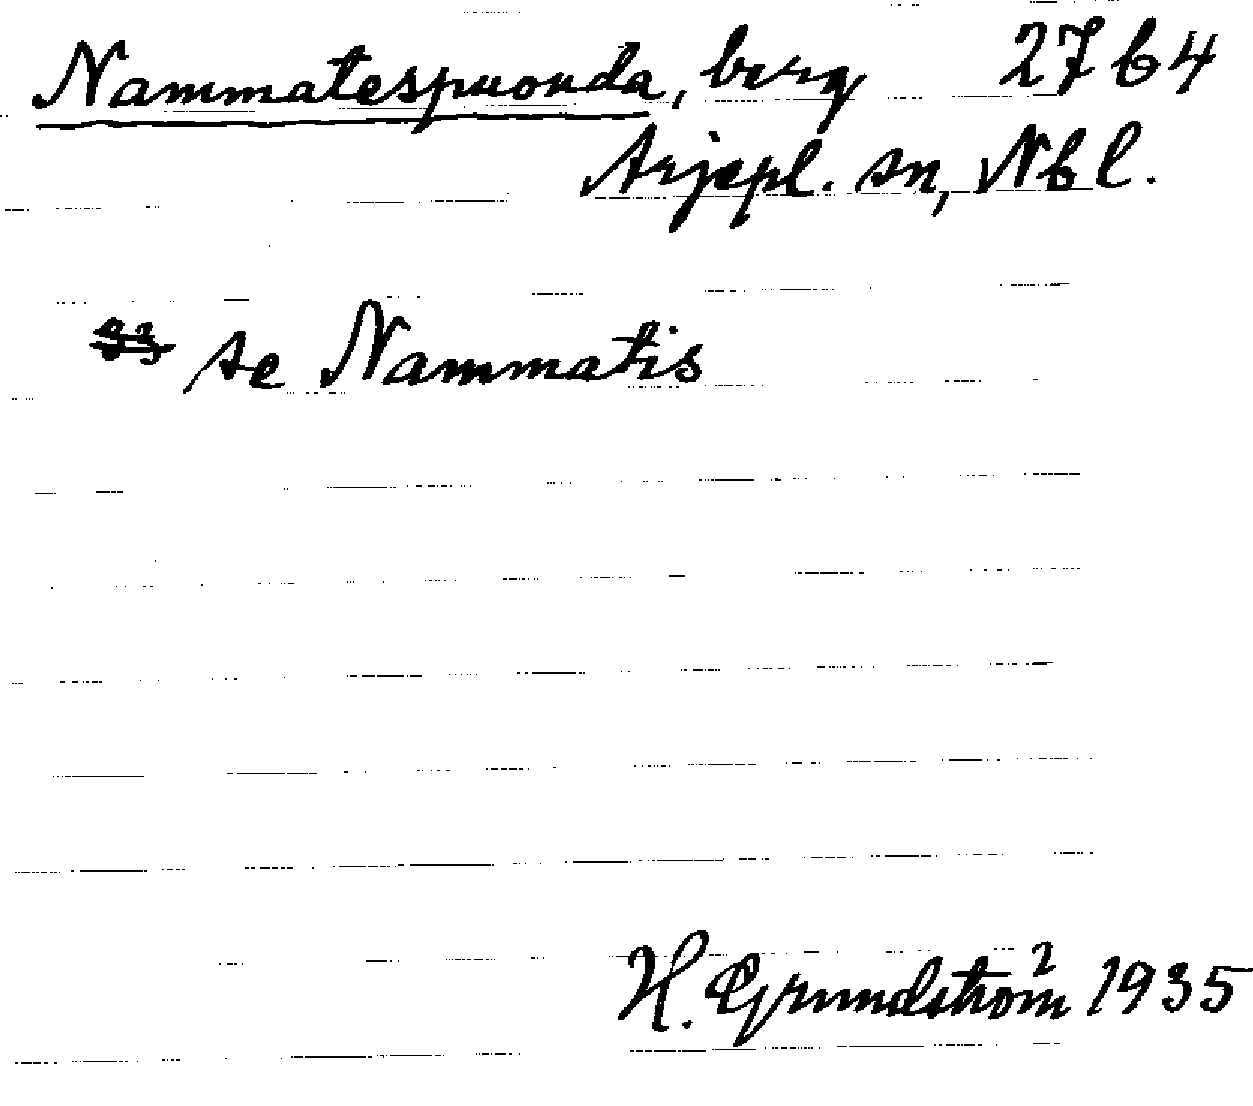 Nammatespuouda, berg 27 b 4
Arjepl. sn, Nbl.
se Nammatis
H. Grundström 1935